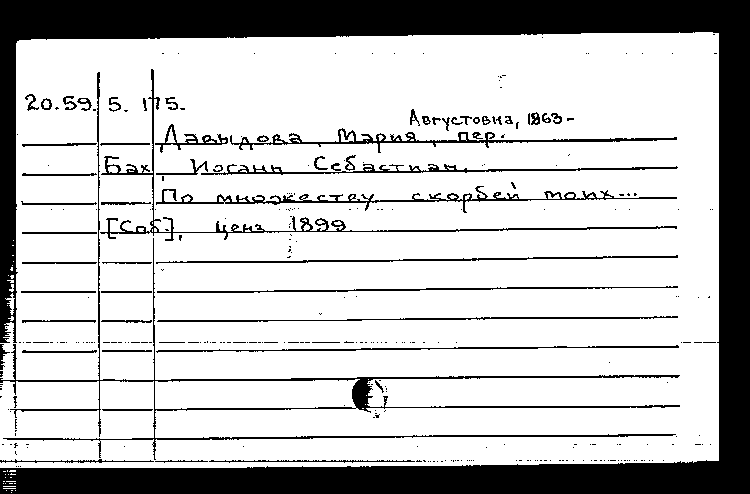 20.59.5.175.
Августовна, 1863-
Давыдова, Мария, пер.
Бах, Иоганн Себастиан.
По множеству скорбей моих...
[Соб], ценз 1899